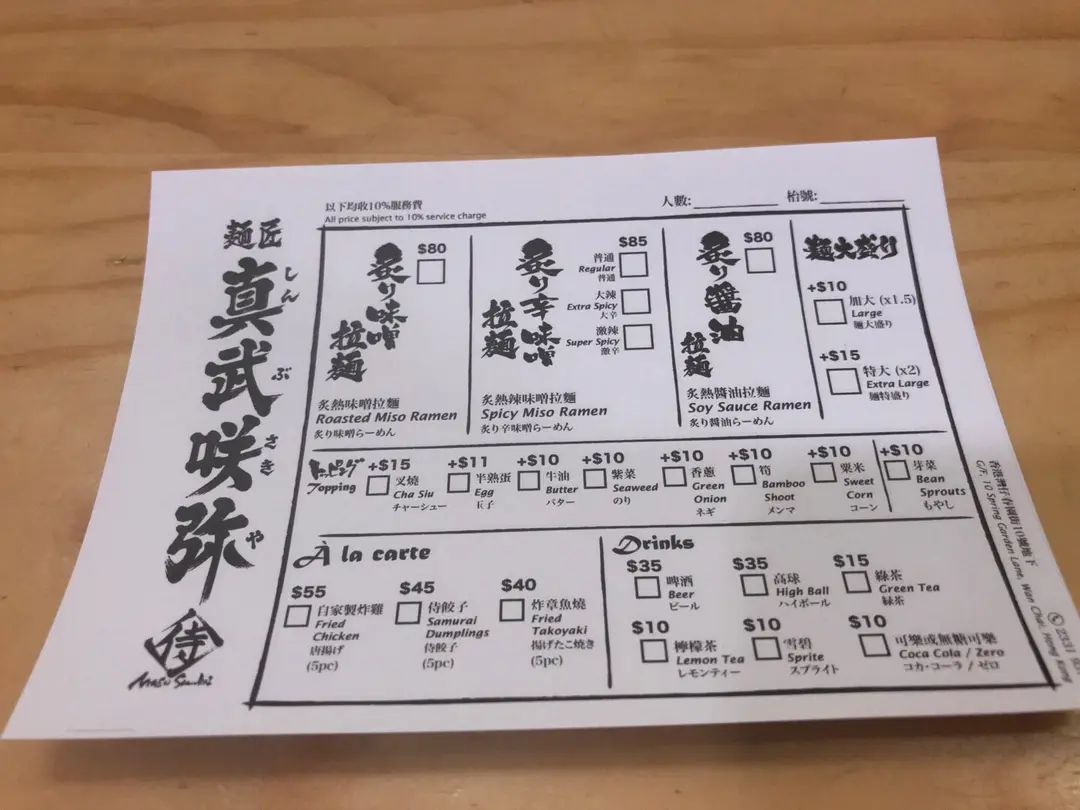 以下均收10%服務費
All price subject to 10% service charge
人數:
枱號:
麺匠
真武咲弥
しん
ぶ
さき
や
侍
$80
炙り味噌
拉麺
炙熱味噌拉麵
Roasted Miso Ramen
炙り味噌らーめん
$85
炙り辛味噌
拉麺
普通
Regular
普通
大辣
Extra Spicy
大辛
激辣
Super Spicy
激辛
炙熱辣味噌拉麵
Spicy Miso Ramen
炙り辛味噌らーめん
$80
炙り醬油
拉麺
炙熱醬油拉麵
Soy Sauce Ramen
炙り醬油らーめん
麺大盛り
+$10
加大 (x1.5)
Large
麺大盛り
+$15
特大 (x2)
Extra Large
麺特盛り
トッピング
Topping
+$15
叉燒
Cha Siu
チャーシュー
+$11
半熟蛋
Egg
玉子
+$10
牛油
Butter
バター
+$10
紫菜
Seaweed
のり
+$10
香蔥
Green
Onion
ネギ
+$10
筍
Bamboo
Shoot
メンマ
+$10
粟米
Sweet
Corn
コーン
+$10
芽菜
Bean
Sprouts
もやし
À la carte
$55
自家製炸雞
Fried
Chicken
唐揚げ
(5pc)
$45
侍餃子
Samurai
Dumplings
侍餃子
(5pc)
$40
炸章魚燒
Fried
Takoyaki
揚げたこ焼き
(5pc)
Drinks
$35
啤酒
Beer
ビール
$35
高球
High Ball
ハイボール
$15
綠茶
Green Tea
緑茶
$10
檸檬茶
Lemon Tea
レモンティー
$10
雪碧
Sprite
スプライト
$10
可樂或無糖可樂
Coca Cola / Zero
コカ・コーラ / ゼロ
香港灣仔春園街10號地下
G/F, 10 Spring Garden Lane, Wan Chai, Hong Kong
2331